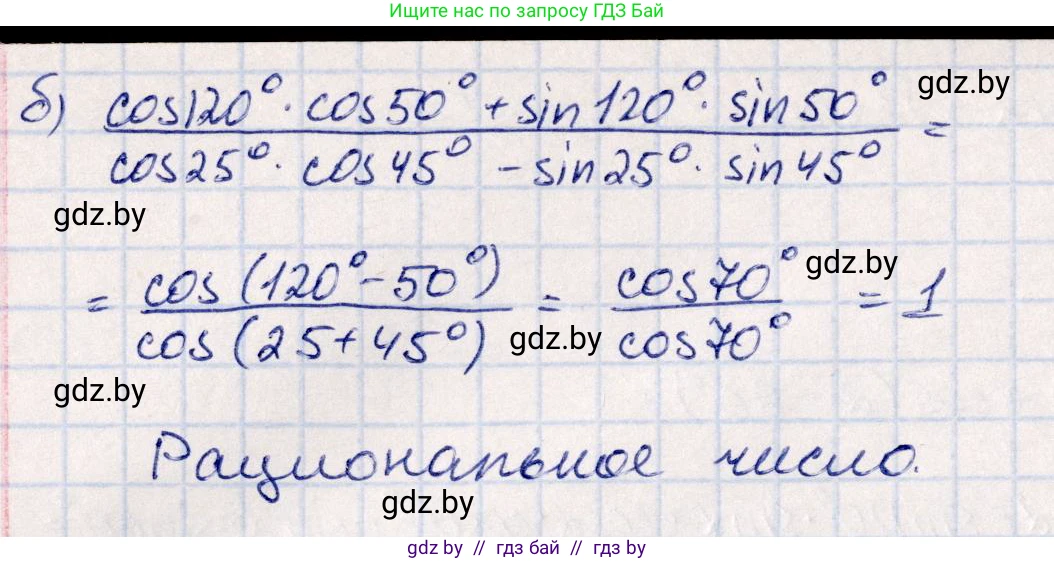 Ищите нас по запросу ГДЗ Бай
б) cos120°·cos50°+sin120°·sin50° / cos25°·cos45°-sin25°·sin45° =
gdz.by
gdz.by
= cos(120°-50°) / cos(25+45°) = cos70° / cos70° = 1
gdz.by
gdz.by
gdz.by
Рациональное число.
gdz.by
gdz by // гдз бай // гдз by